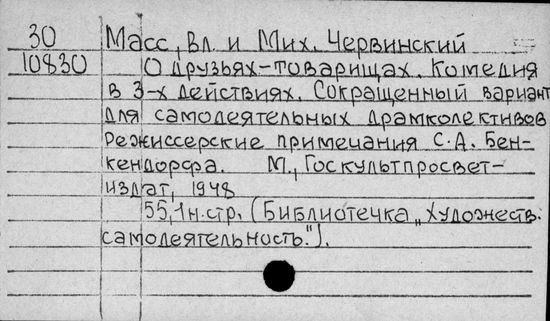 30 Масс, Вл. и Мих. Червинский
10830 О друзьях-товарищах. Комедия
в 3-х действиях. Сокращенный вариант
для самодеятельных драмколективов
Режиссерские примечания С.А. Бен-
кендорфа. М., Госкультпросвет-
издат, 1948
55,1н.стр. (Библиотечка „Художеств.
самодеятельность").